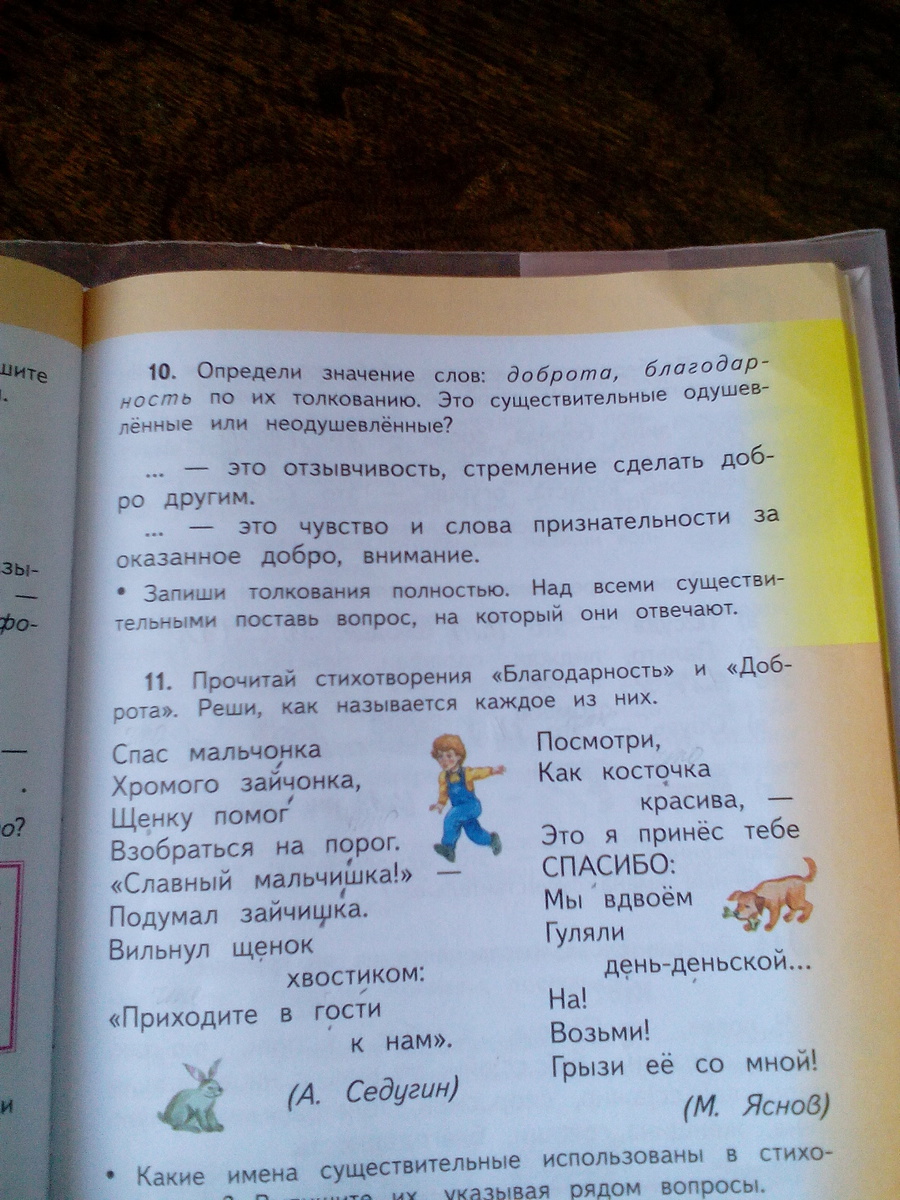 шите
зы-
—
фо-
—
.
о?
и
10. Определи значение слов: доброта, благодар-
ность по их толкованию. Это существительные одушев-
лённые или неодушевлённые?
... — это отзывчивость, стремление сделать доб-
ро другим.
... — это чувство и слова признательности за
оказанное добро, внимание.
• Запиши толкования полностью. Над всеми существи-
тельными поставь вопрос, на который они отвечают.
11. Прочитай стихотворения «Благодарность» и «Доб-
рота». Реши, как называется каждое из них.
Спас мальчонка
Хромого зайчонка,
Щенку помог
Взобраться на порог.
«Славный мальчишка!» —
Подумал зайчишка.
Вильнул щенок
хвостиком:
«Приходите в гости
к нам».
(А. Седугин)
Посмотри,
Как косточка
красива, —
Это я принёс тебе
СПАСИБО:
Мы вдвоём
Гуляли
день-деньской...
На!
Возьми!
Грызи её со мной!
(М. Яснов)
• Какие имена существительные использованы в стихо-
их, указывая рядом вопросы.